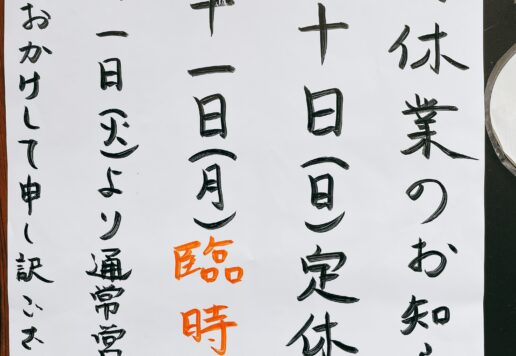 休業のお知
十日(日)定休
十一日(月)臨時
一日(火)より通常営
おかけして申し訳ござ